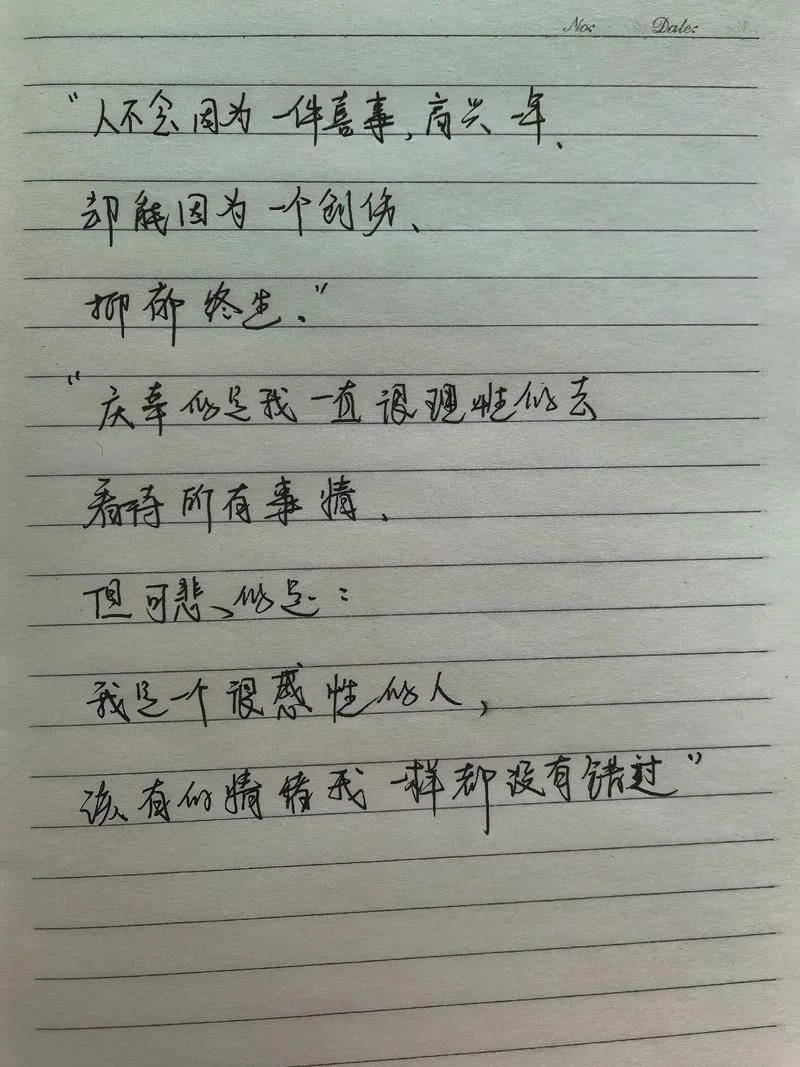 No:  Date:
“人不会因为一件喜事,高兴一年、
却能因为一个创伤、
抑郁终生.”
“庆幸的是我一直很理性的去
看待所有事情、
但可悲的是:
我是一个很感性的人,
该有的情绪我一样都没有错过”